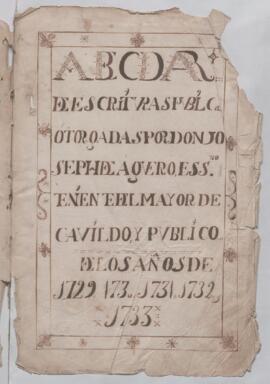 ABCDAR.º
DE ESCRITURAS PUBLCˢ
OTORGADAS POR DON JO
SEPH DE AGUERO ESSⁿᵒ
TENIENTE EL MAYOR DE
CAVILDO, Y PVBLICO
DE LOS AÑOS DE
1729. 173. 1731. 1732.
1733